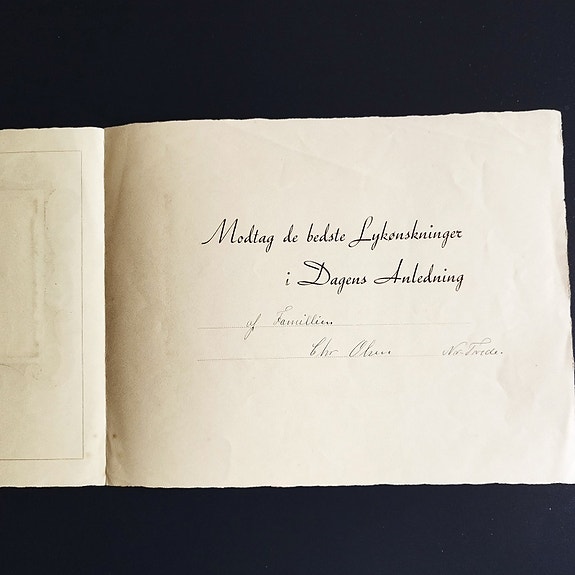 Modtag de bedste Lykønskninger
i Dagens Anledning
af Famillien
Chr Olsen Nr.